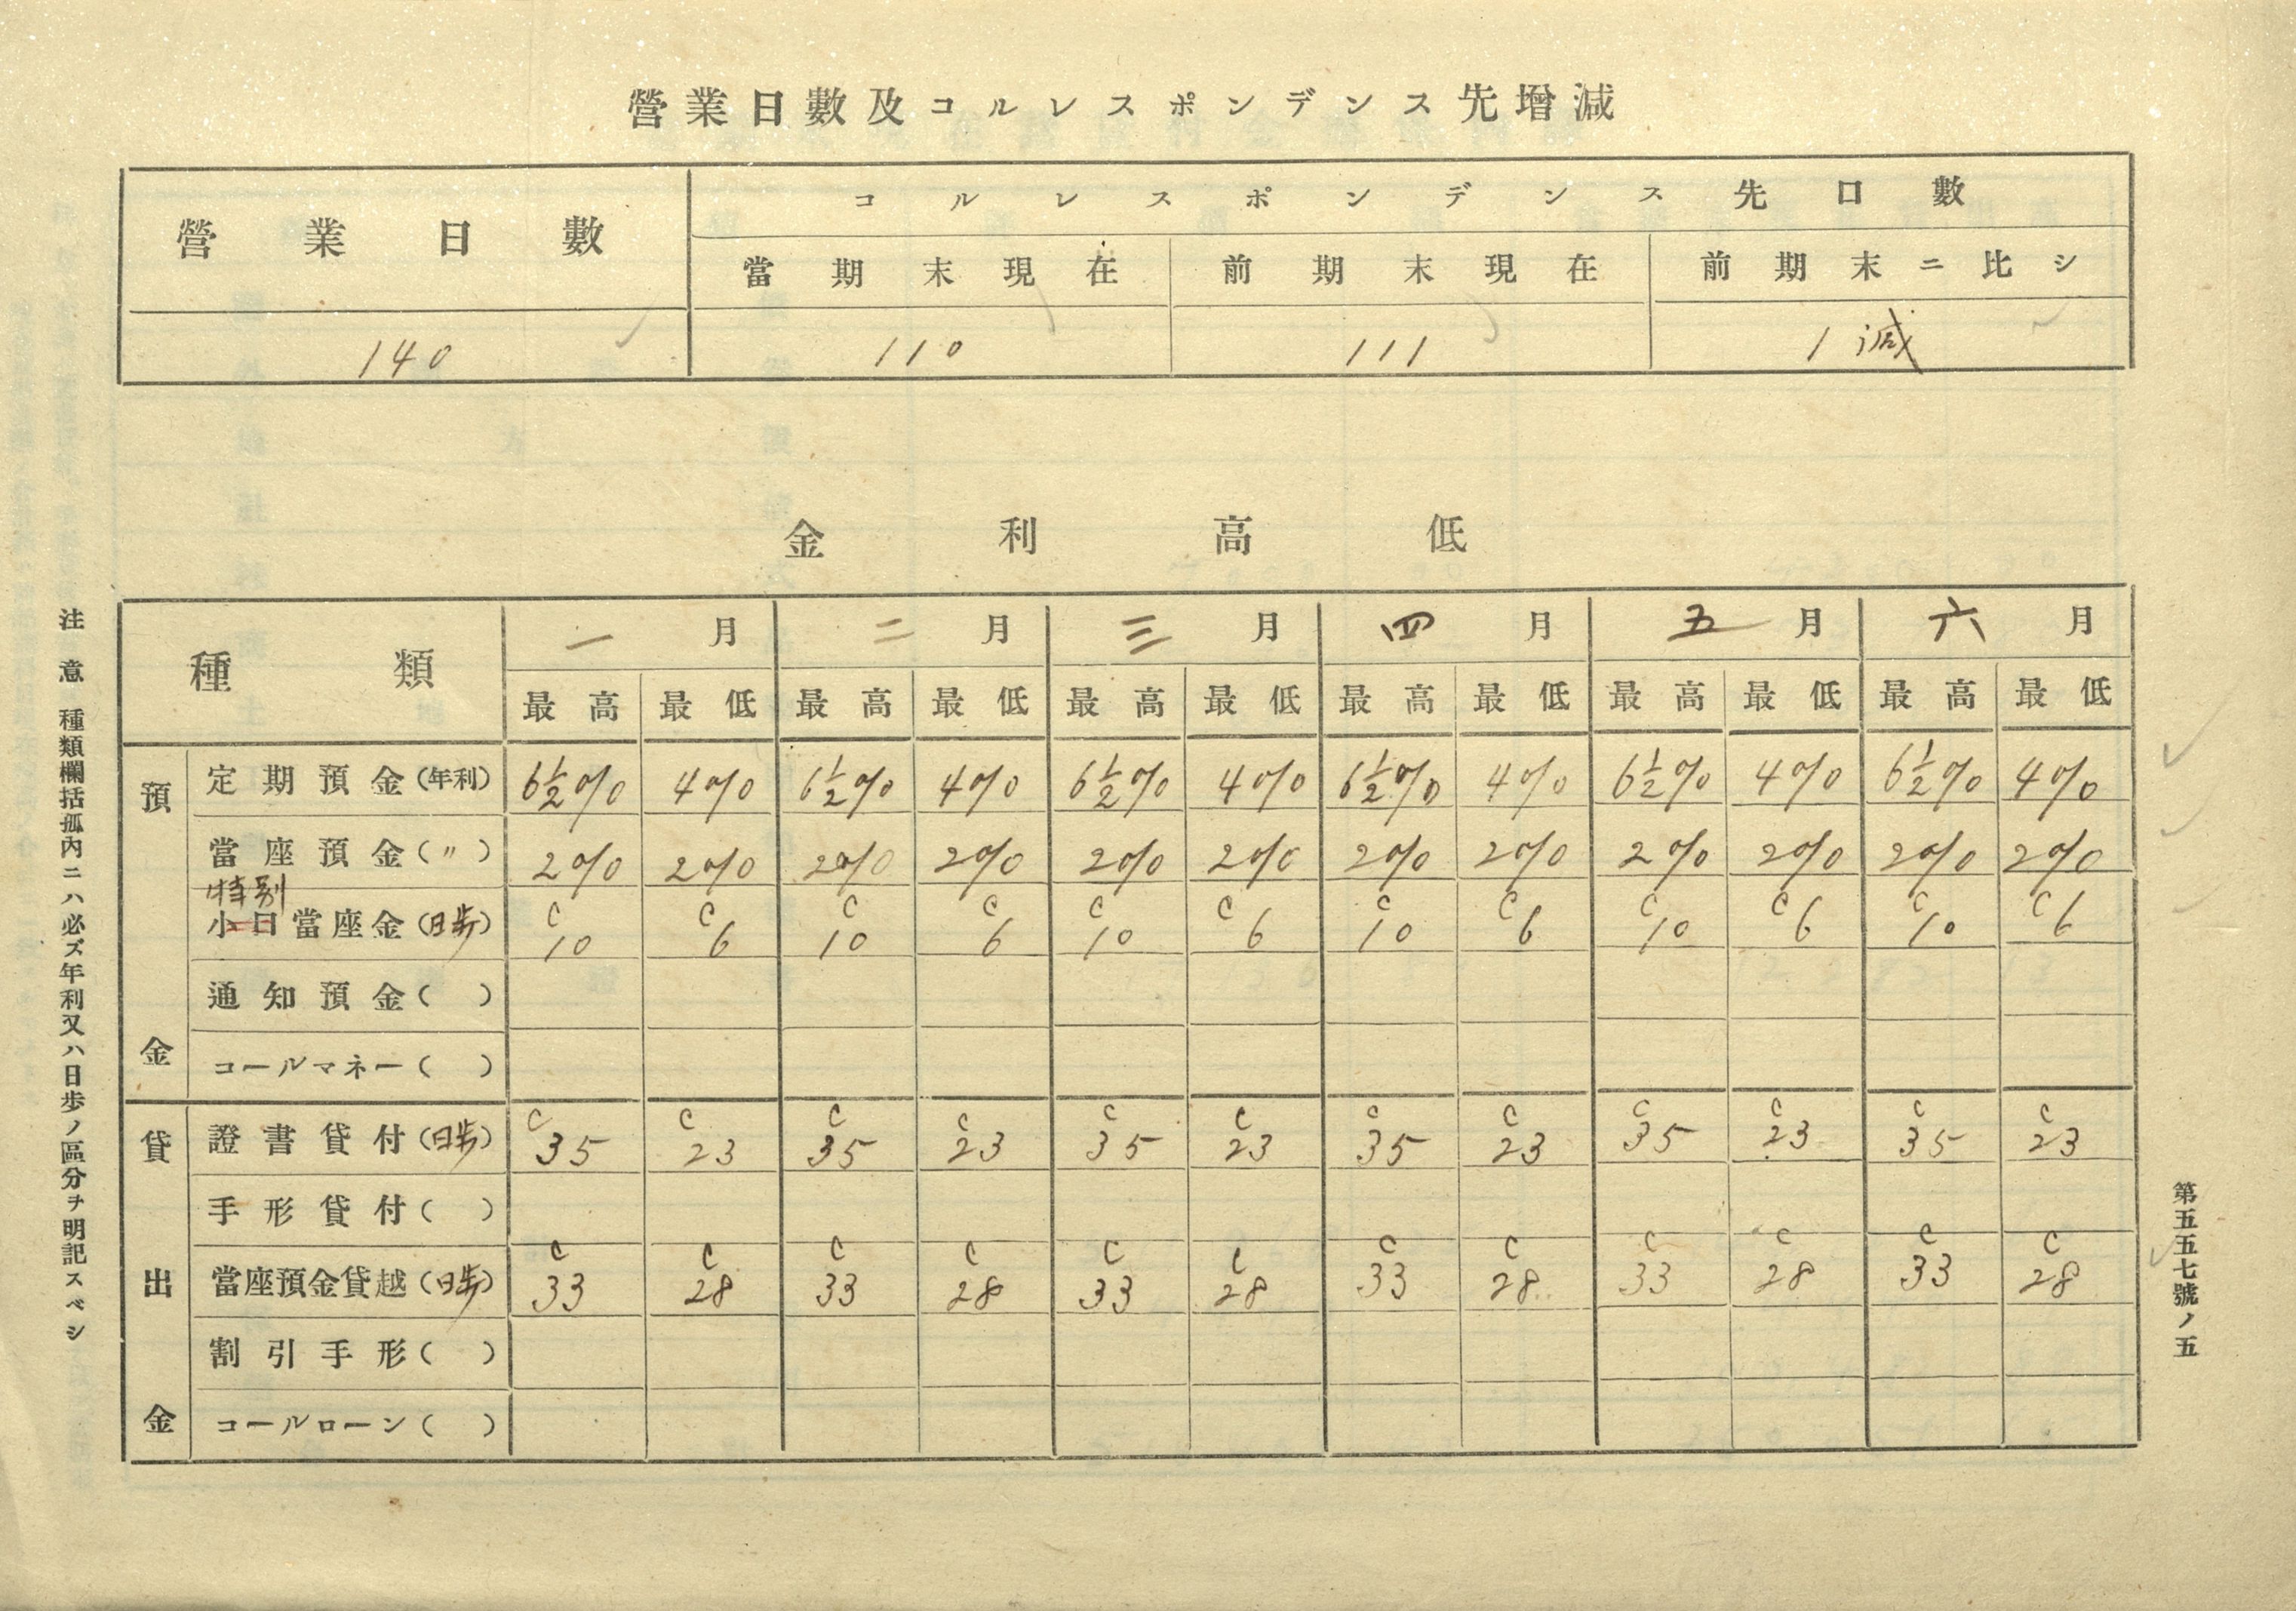 營業日數及コルレスポンデンス先增減
營業日數 コルレスポンデンス先口數
當期末現在 前期末現在 前期末ニ比シ
140 110 111 1減
金利高低
種類 一月 二月 三月 四月 五月 六月
最高 最低 最高 最低 最高 最低 最高 最低 最高 最低 最高 最低
預金
定期預金(年利) 6½% 4% 6½% 4% 6½% 4% 6½% 4% 6½% 4% 6½% 4%
當座預金(〃) 2% 2% 2% 2% 2% 2% 2% 2% 2% 2% 2% 2%
特別
小口當座金(日歩) C10 C6 C10 C6 C10 C6 C10 C6 C10 C6 C10 C6
通知預金( )
コールマネー( )
貸出金
證書貸付(日歩) C35 C23 C35 C23 C35 C23 C35 C23 C35 C23 C35 C23
手形貸付( )
當座預金貸越(日歩) C33 C28 C33 C28 C33 C28 C33 C28 C33 C28 C33 C28
割引手形( )
コールローン( )
注意 種類欄括孤內ニハ必ズ年利又ハ日歩ノ區分ヲ明記スベシ
第五五七號ノ五